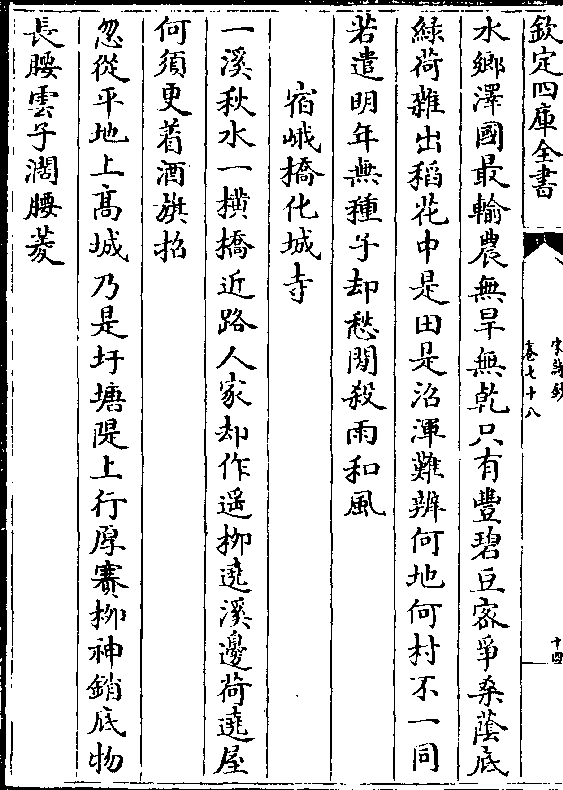 欽定四庫全書
宋詩鈔
卷七十八
十四
水鄉澤國最輸農無旱無乾只有豐碧豆密爭桑蔭底
綠荷雜出稻花中是田是沼渾難辨何地何村不一同
若遣明年無種子却愁閒殺雨和風
宿峨橋化城寺
一溪秋水一横橋近路人家却作遥柳遶溪邊荷遶屋
何須更着酒旗招
忽從平地上髙城乃是圩塘隄上行厚賽柳神銷底物
長腰雲子濶腰菱